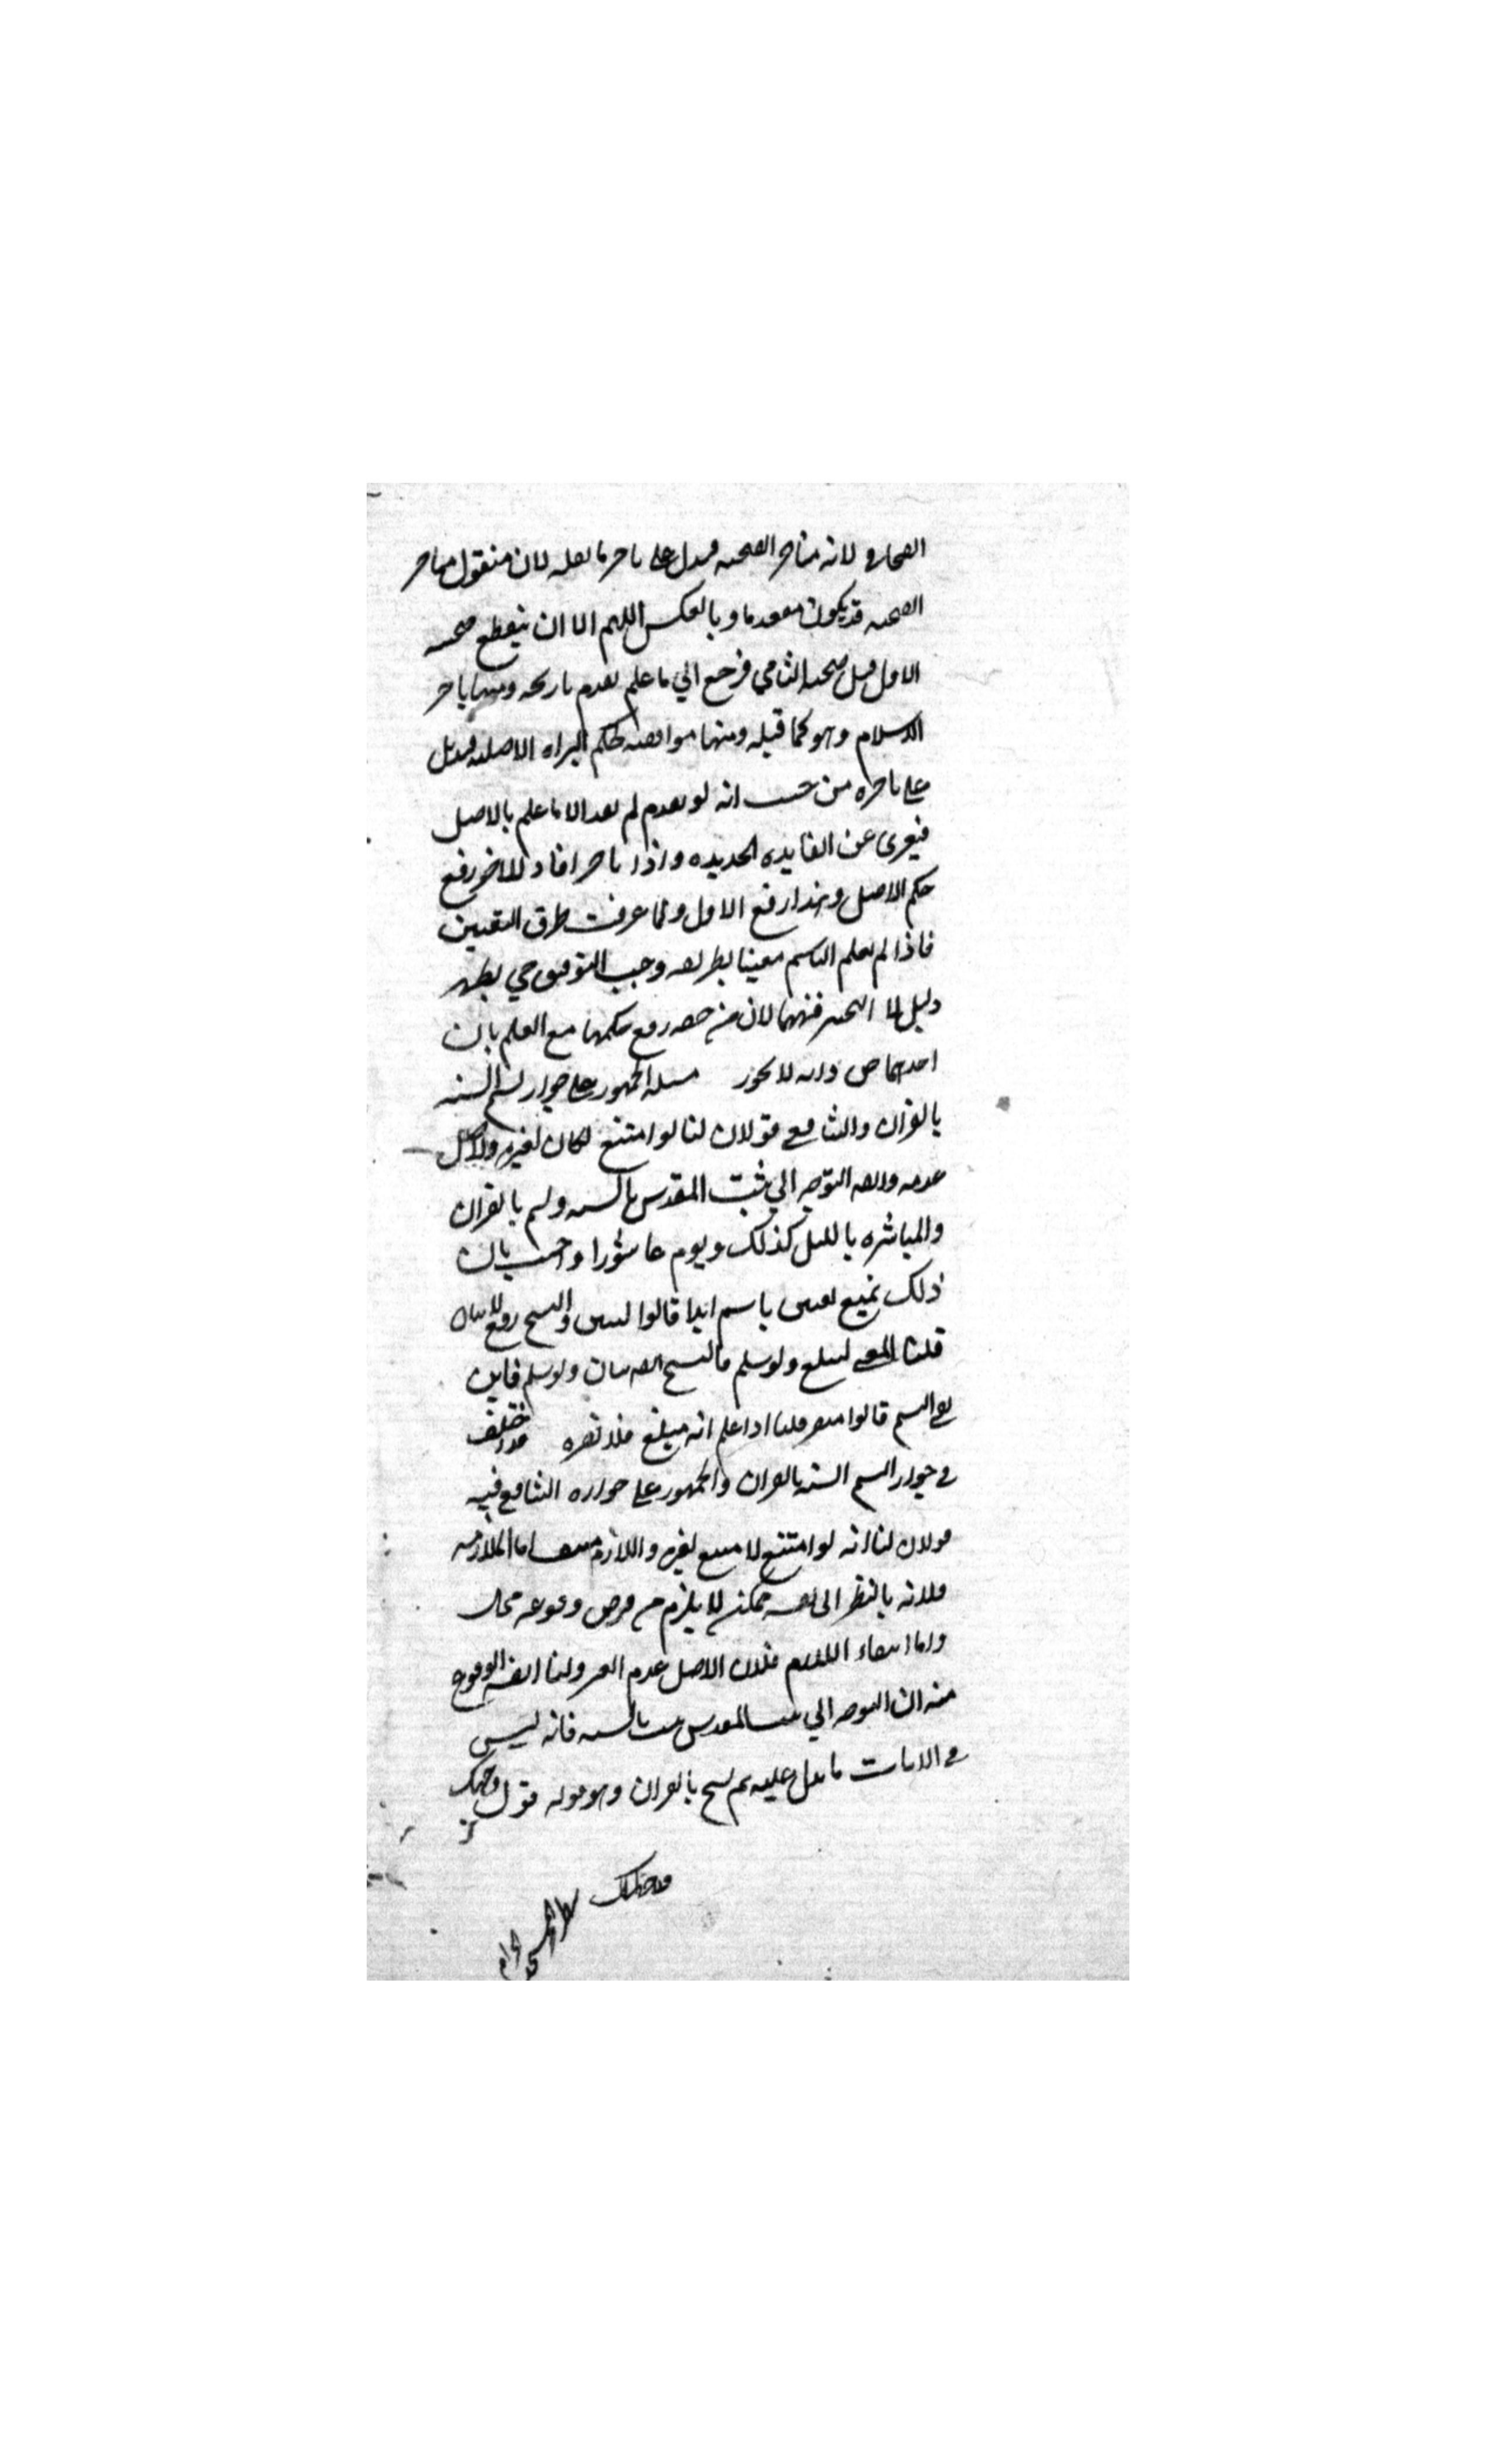 الصحابي لانه متاخر الصحبه فيدل على تاخر ما نقله لان منقول متاخر
الصحبه قد يكون متقدما وبالعكس اللهم الا ان ينقطع صحبه
الاول قبل صحبه الثاني فرجع الي ما علم تقدم تاريخه ومنها تاخر
الاسلام وهو كما قبله ومنها موافقته لحكم البراه الاصليه فيدل
على تاخره من حيث انه لو تقدم لم يفد الا ما علم بالاصل
فيعرى عن الفايده الجديده واذا تاخر افاد الاخر رفع
حكم الاصل وهذا رفع الاول ولما عرفت طرق التعيين
فاذا لم يعلم الناسخ معينا بطريقه وجب التوقف حتي يظهر
دليل لا التخيير فيهما لان فيه رفع حكمهما مع العلم بان
احدهما حق وانه لا يجوز مسله الجمهور على جواز نسخ السنه
بالقران وللشافعي قولان لنا لو امتنع لكان لغيره والاصل
عدمه وايضا التوجه الي بيت المقدس بالسنه ونسخ بالقران
والمباشره بالليل كذلك ويوم عاشورا واجيب بان
ذلك يمنع تعيين ناسخ ابدا قالوا لتبين والنسخ رفع لا بيان
قلنا المعنى لتبلغ ولو سلم فالنسخ ايضا بيان ولو سلم فاين
نفي النسخ قالوا منفر قلنا اذا علم انه مبلغ فلا نفره قد اختلف
في جواز نسخ السنه بالقران والجمهور على جوازه الشافعي فيه
قولان لنا انه لو امتنع لامتنع لغيره واللازم منتف اما الملازمه
فلانه بالنظر الى نفسه ممكن لا يلزم من فرض وقوعه محال
واما انتفاء اللازم فلان الاصل عدم الغير ولنا ايضا الوقوع
منه ان التوجه الي بيت المقدس بيت بالسنه فانه ليس
في الايات ما يدل عليه ثم نسخ بالقران وهو قوله فول وجهك
وجهك شطر المسجد الحرام